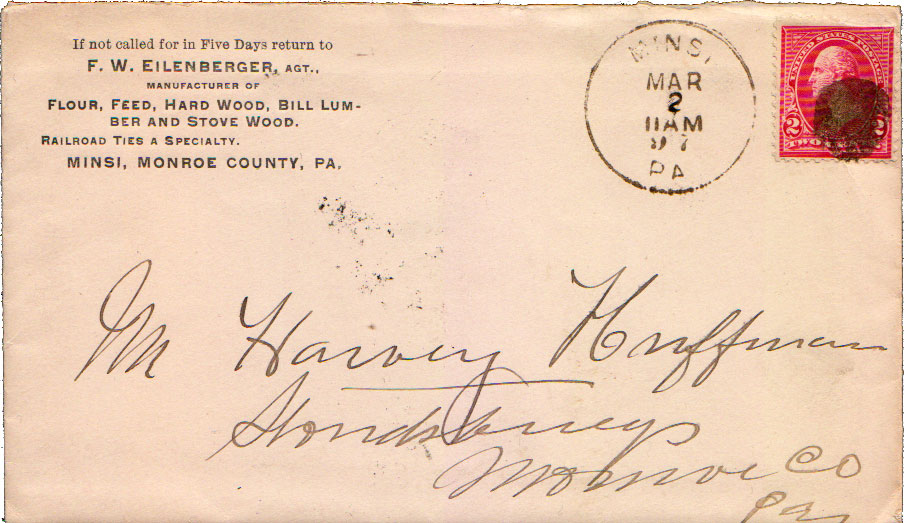 If not called for in Five Days return to
F. W. EILENBERGER, AGT.,
MANUFACTURER OF
FLOUR, FEED, HARD WOOD, BILL LUM-
BER AND STOVE WOOD.
RAILROAD TIES A SPECIALTY.
MINSI, MONROE COUNTY, PA.
MINSI
MAR
2
11AM
97
PA
UNITED STATES POSTAGE
2 2
Mr Harvey Huffman
Monroe Co
Pa